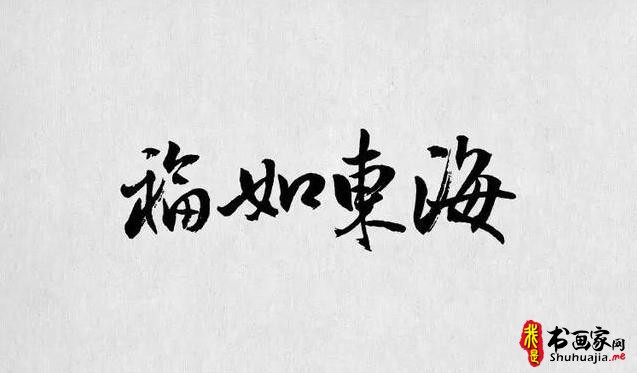 福如東海
我是
书画家网
Shuhuajia.me